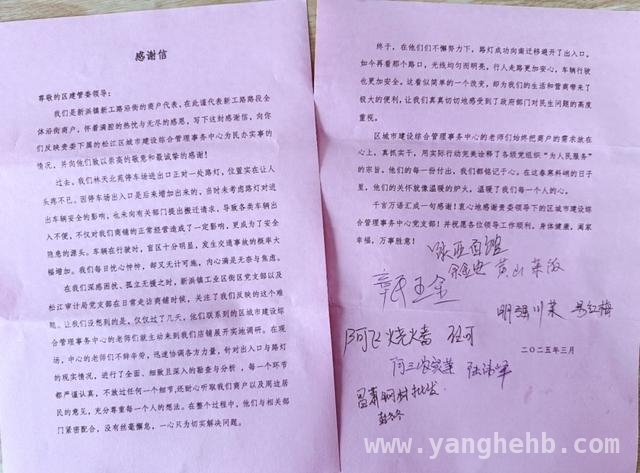 感谢信
尊敬的区建管委领导：
我们是新浜镇新工路沿街的商户代表，在此谨代表新工路路段全
体沿街商户，怀着满腔的热忱与无尽的感恩，写下这封感谢信，向你
们反映贵委下属的松江区城市建设综合管理事务中心为民办实事的
情况，并向他们致以崇高的敬意和最诚挚的感谢！
过去，我们林天北苑停车场进出口正对一处路灯，位置实在让人
头疼不已。因停车场出入口是后来增加出来的，当时未考虑路灯对进
出车辆安全的影响，也未向有关部门提出搬迁请求，导致各类车辆出
入不便，不仅对我们商铺的正常经营造成了一定影响，更成为了安全
隐患的源头。车辆在行驶时，盲区十分明显，发生交通事故的概率大
幅增加。我们每日忧心忡忡，却又无计可施，内心满是无奈与焦虑。
在我们深感困扰、孤立无援之时，新浜镇工业区街区党支部以及
松江审计局党支部在日常走访商铺时候，关注了我们反映的这个难
题。让我们没想到的是，仅仅过了几天，他们联系到的区城市建设综
合管理事务中心的老师们就主动来到我们店铺展开实地调研。在现
场，中心的老师们不辞辛劳，迅速协调各方力量，针对出入口与路灯
的现实情况，进行了全面、细致且深入的勘查与分析，每一个环节
都严谨认真，不放过任何一个细节，还耐心听取我们商户以及周边居
民的意见，充分尊重每一个人的想法。在整个过程中，他们与相关部
门紧密配合，没有丝毫懈怠，一心只为切实解决问题。
终于，在他们们不懈努力下，路灯成功向南迁移避开了出入口。
如今再看那个路口，光线均匀而明亮，行人走路更加安心，车辆行驶
也更加安全。这看似简单的一个改变，却为我们的生活和营商带来了
极大的便利，让我们真真切切地感受到了政府部门对民生问题的高度
重视。
区城市建设综合管理事务中心的老师们始终把商户的需求放在
心上，真抓实干，用实际行动完美诠释了各级党组织“为人民服务”
的宗旨。他们的每一份付出，我们都铭记于心。在这春寒料峭的日子
里，他们的关怀就像温暖的炉火，温暖了我们每一个人的心。
千言万语汇成一句感谢！衷心地感谢贵委领导下的区城市建设综
合管理事务中心党支部！并祝愿各位领导工作顺利，身体健康，阖家
幸福，万事胜意！
黄山菜饭
明强川菜
阿飞烧烤
阿三农家菜
二〇二五年三月
www.yanghehb.com